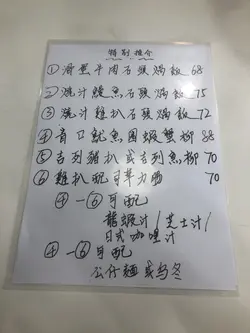 特别推介
① 滑蛋牛肉石頭焗飯 68
② 燒汁鰻魚石頭焗飯 75
③ 燒汁雞扒石頭焗飯 72
④ 青口魷魚圈蝦蟹柳 88
⑤ 吉列豬扒或吉列魚柳 70
⑥ 雞扒配司華力腸 70
④ — ⑥ 可配
龍蝦汁/芝士汁/
日式咖喱汁
④ — ⑥ 可配
公仔麵或乌冬